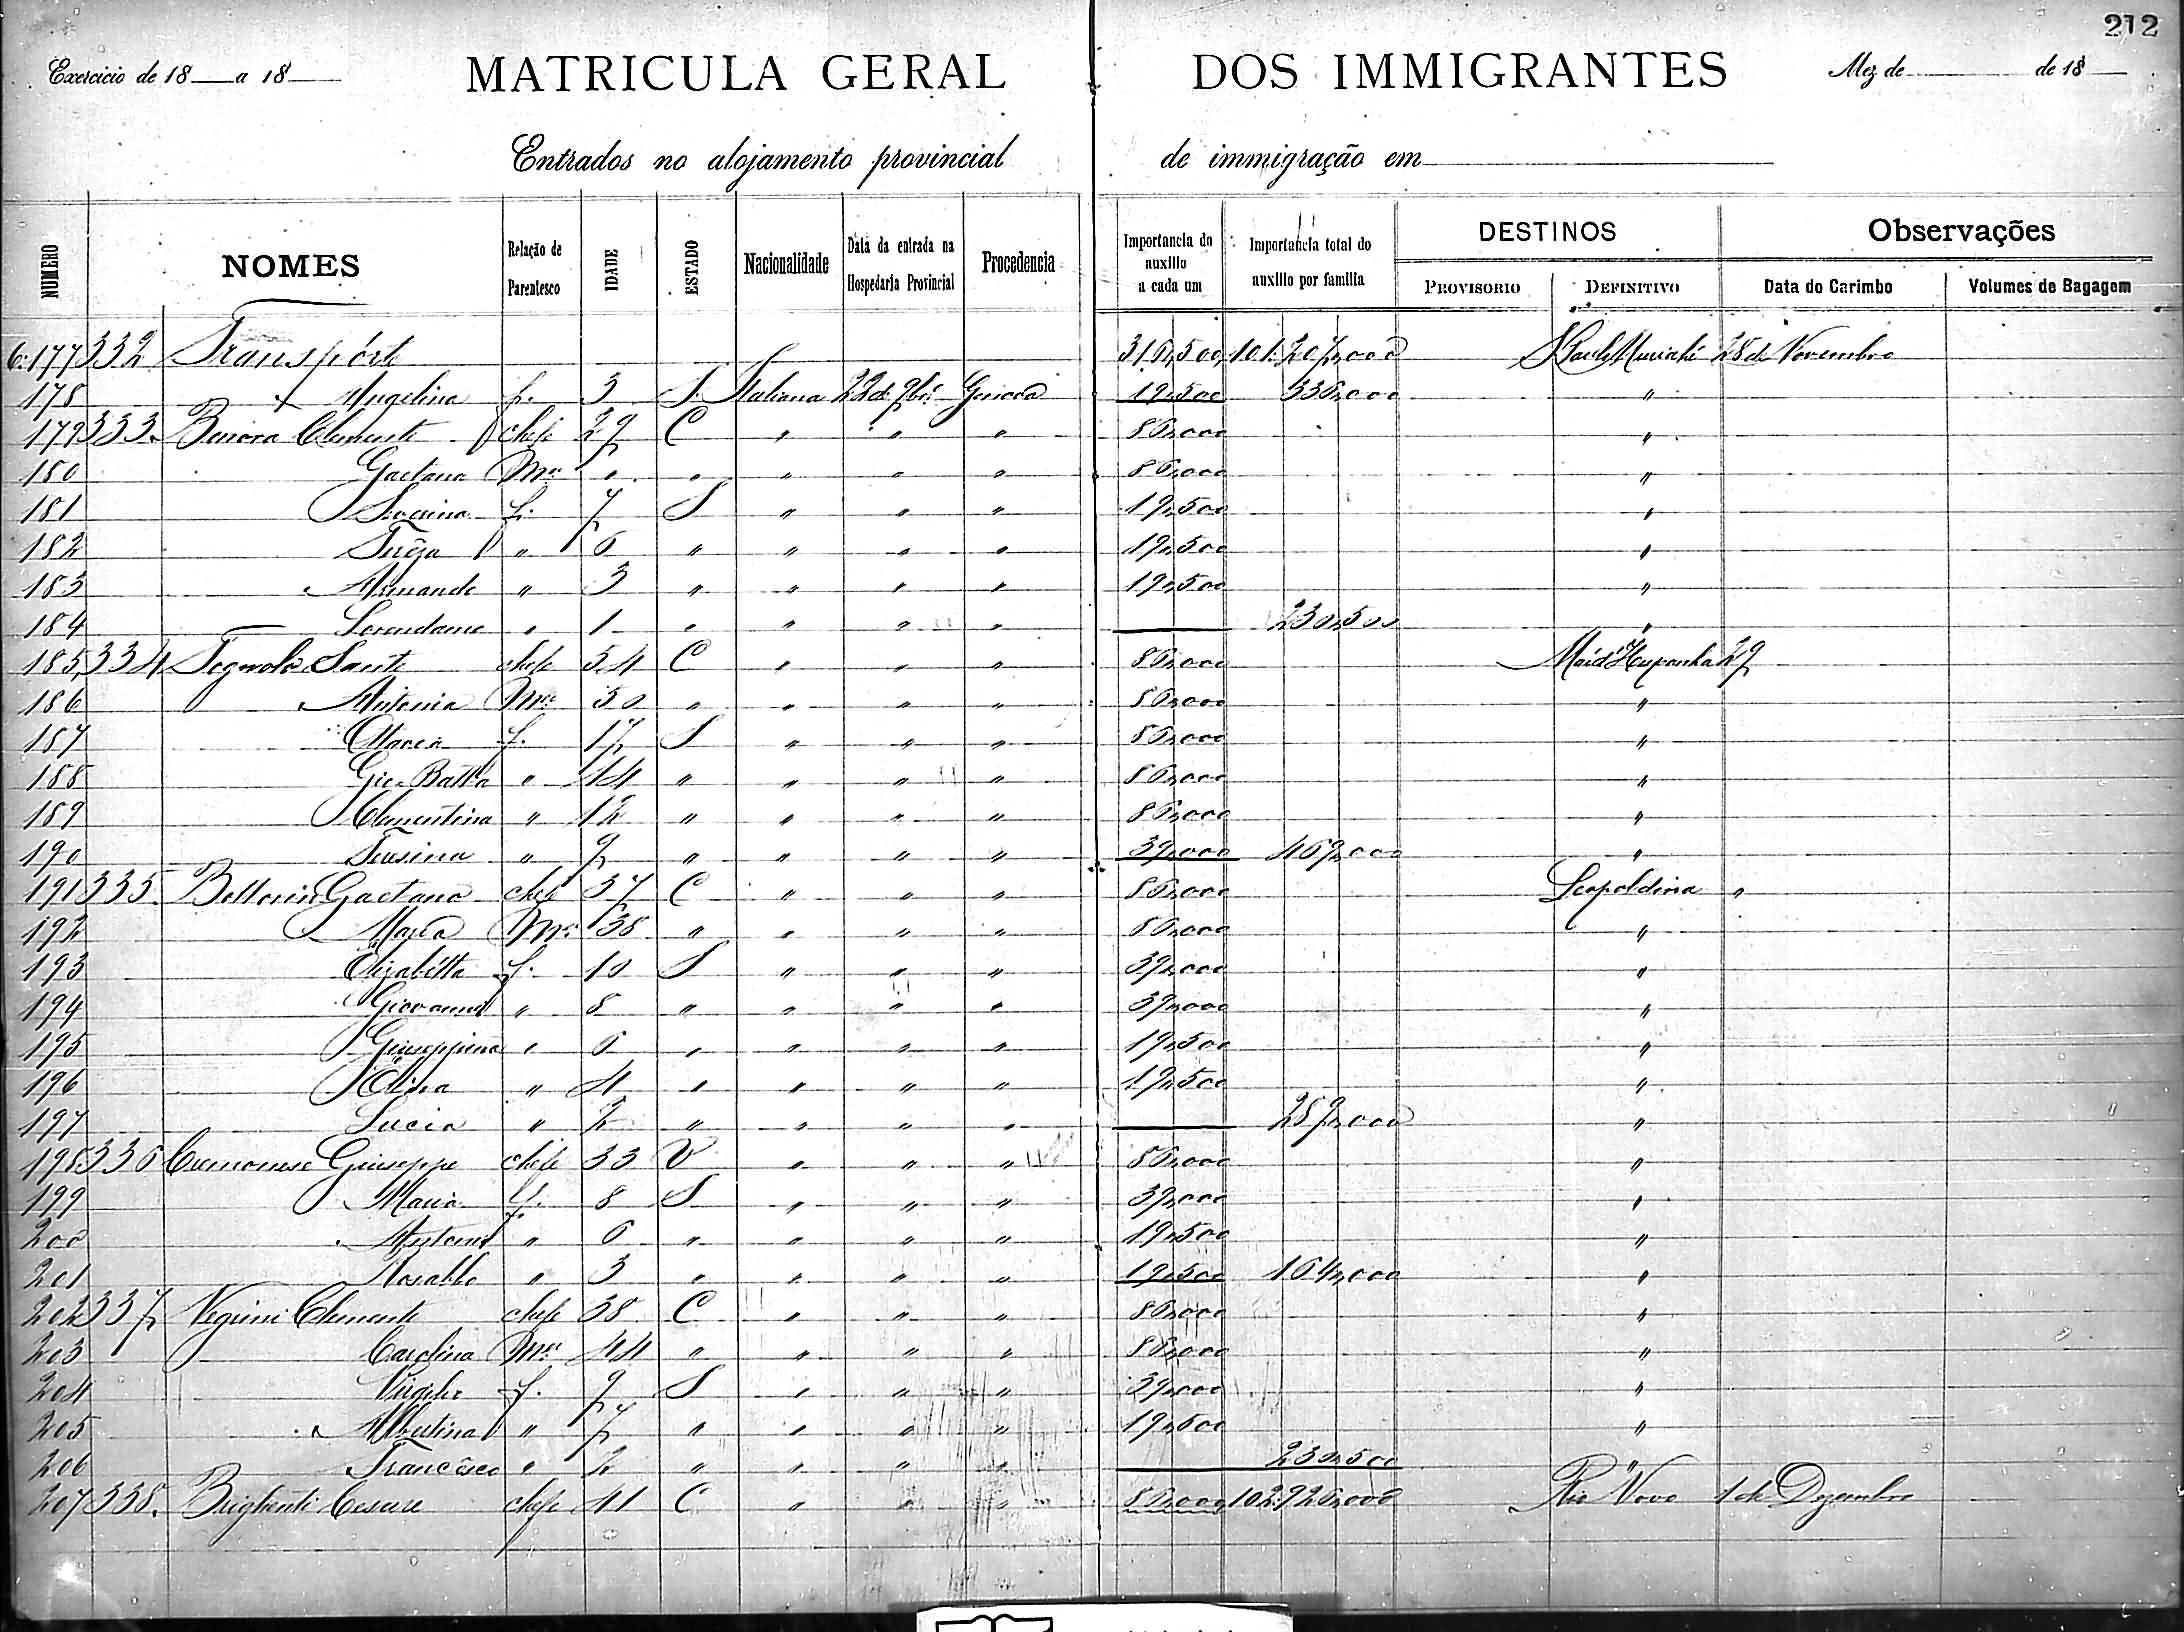 212
Exercicio de 18 a 18 MATRICULA GERAL DOS IMMIGRANTES Mez de de 18
Entrados no alojamento provincial de immigração em
NUMERO NOMES Relação de Parentesco IDADE ESTADO Nacionalidade Data da entrada na Hospedaria Provincial Procedencia Importancia do auxilio a cada um Importancia total do auxilio por familia DESTINOS PROVISORIO DEFINITIVO Observações Data do Carimbo Volumes de Bagagem
6.177 332 Transpórte 316,500 101.207,000 S Paulo Muriahé 28 de Novembro
178 " Angelina f. 3 S. Italiana 22 de 9bro Genova 19,500 336,000 "
179 333. Benora Clemente chefe 29 C " " " 86,000 "
180 Gaetana Mer " " " " " 86,000 "
181 f. 7 S " " " 19,500 "
182 Teréza " 6 " " " " 19,500 "
183 Armando " 3 " " " " 19,500 "
184 " 1 " " " " 230,500 "
185 334 Sante chefe 54 C " " " 86,000 Mar d'Hespanha 29
186 Antonia Mer 50 " " " " 86,000 "
187 Maria f. 17 S " " " 86,000 "
188 Gio Batta " 14 " " " " 86,000 "
189 Clementina " 12 " " " " 86,000 "
190 " 9 " " " " 39,000 469,000 "
191 335. Bellorin Gaetano chefe 37 C " " " 86,000 Leopoldina "
192 Maria Mer 38 " " " " 86,000 "
193 Elizabétta f. 10 S " " " 39,000 "
194 Giovanni " 8 " " " " 39,000 "
195 Giuseppina " 6 " " " " 19,500 "
196 Elisa " 4 " " " " 19,500 "
197 Lucia " 2 " " " " 289,000 "
198 336 Cremonese Giuseppe chefe 33 V " " " 86,000 "
199 Maria f. 8 S " " " 39,000 "
200 Antonio " 6 " " " " 19,500 "
201 " 3 " " " " 19,500 164,000 "
202 337 Negrini Clemente chefe 38 C " " " 86,000 "
203 Carolina Mer 44 " " " " 86,000 "
204 Virgilio f. 9 S " " " 39,000 "
205 Albertina " 7 " " " " 19,500 "
206 Francesco " 2 " " " " 230,500 "
207 338. Brighenti Cesare chefe 41 C " " " 86,000 102.926,000 Rio Novo 1 de Dezembro